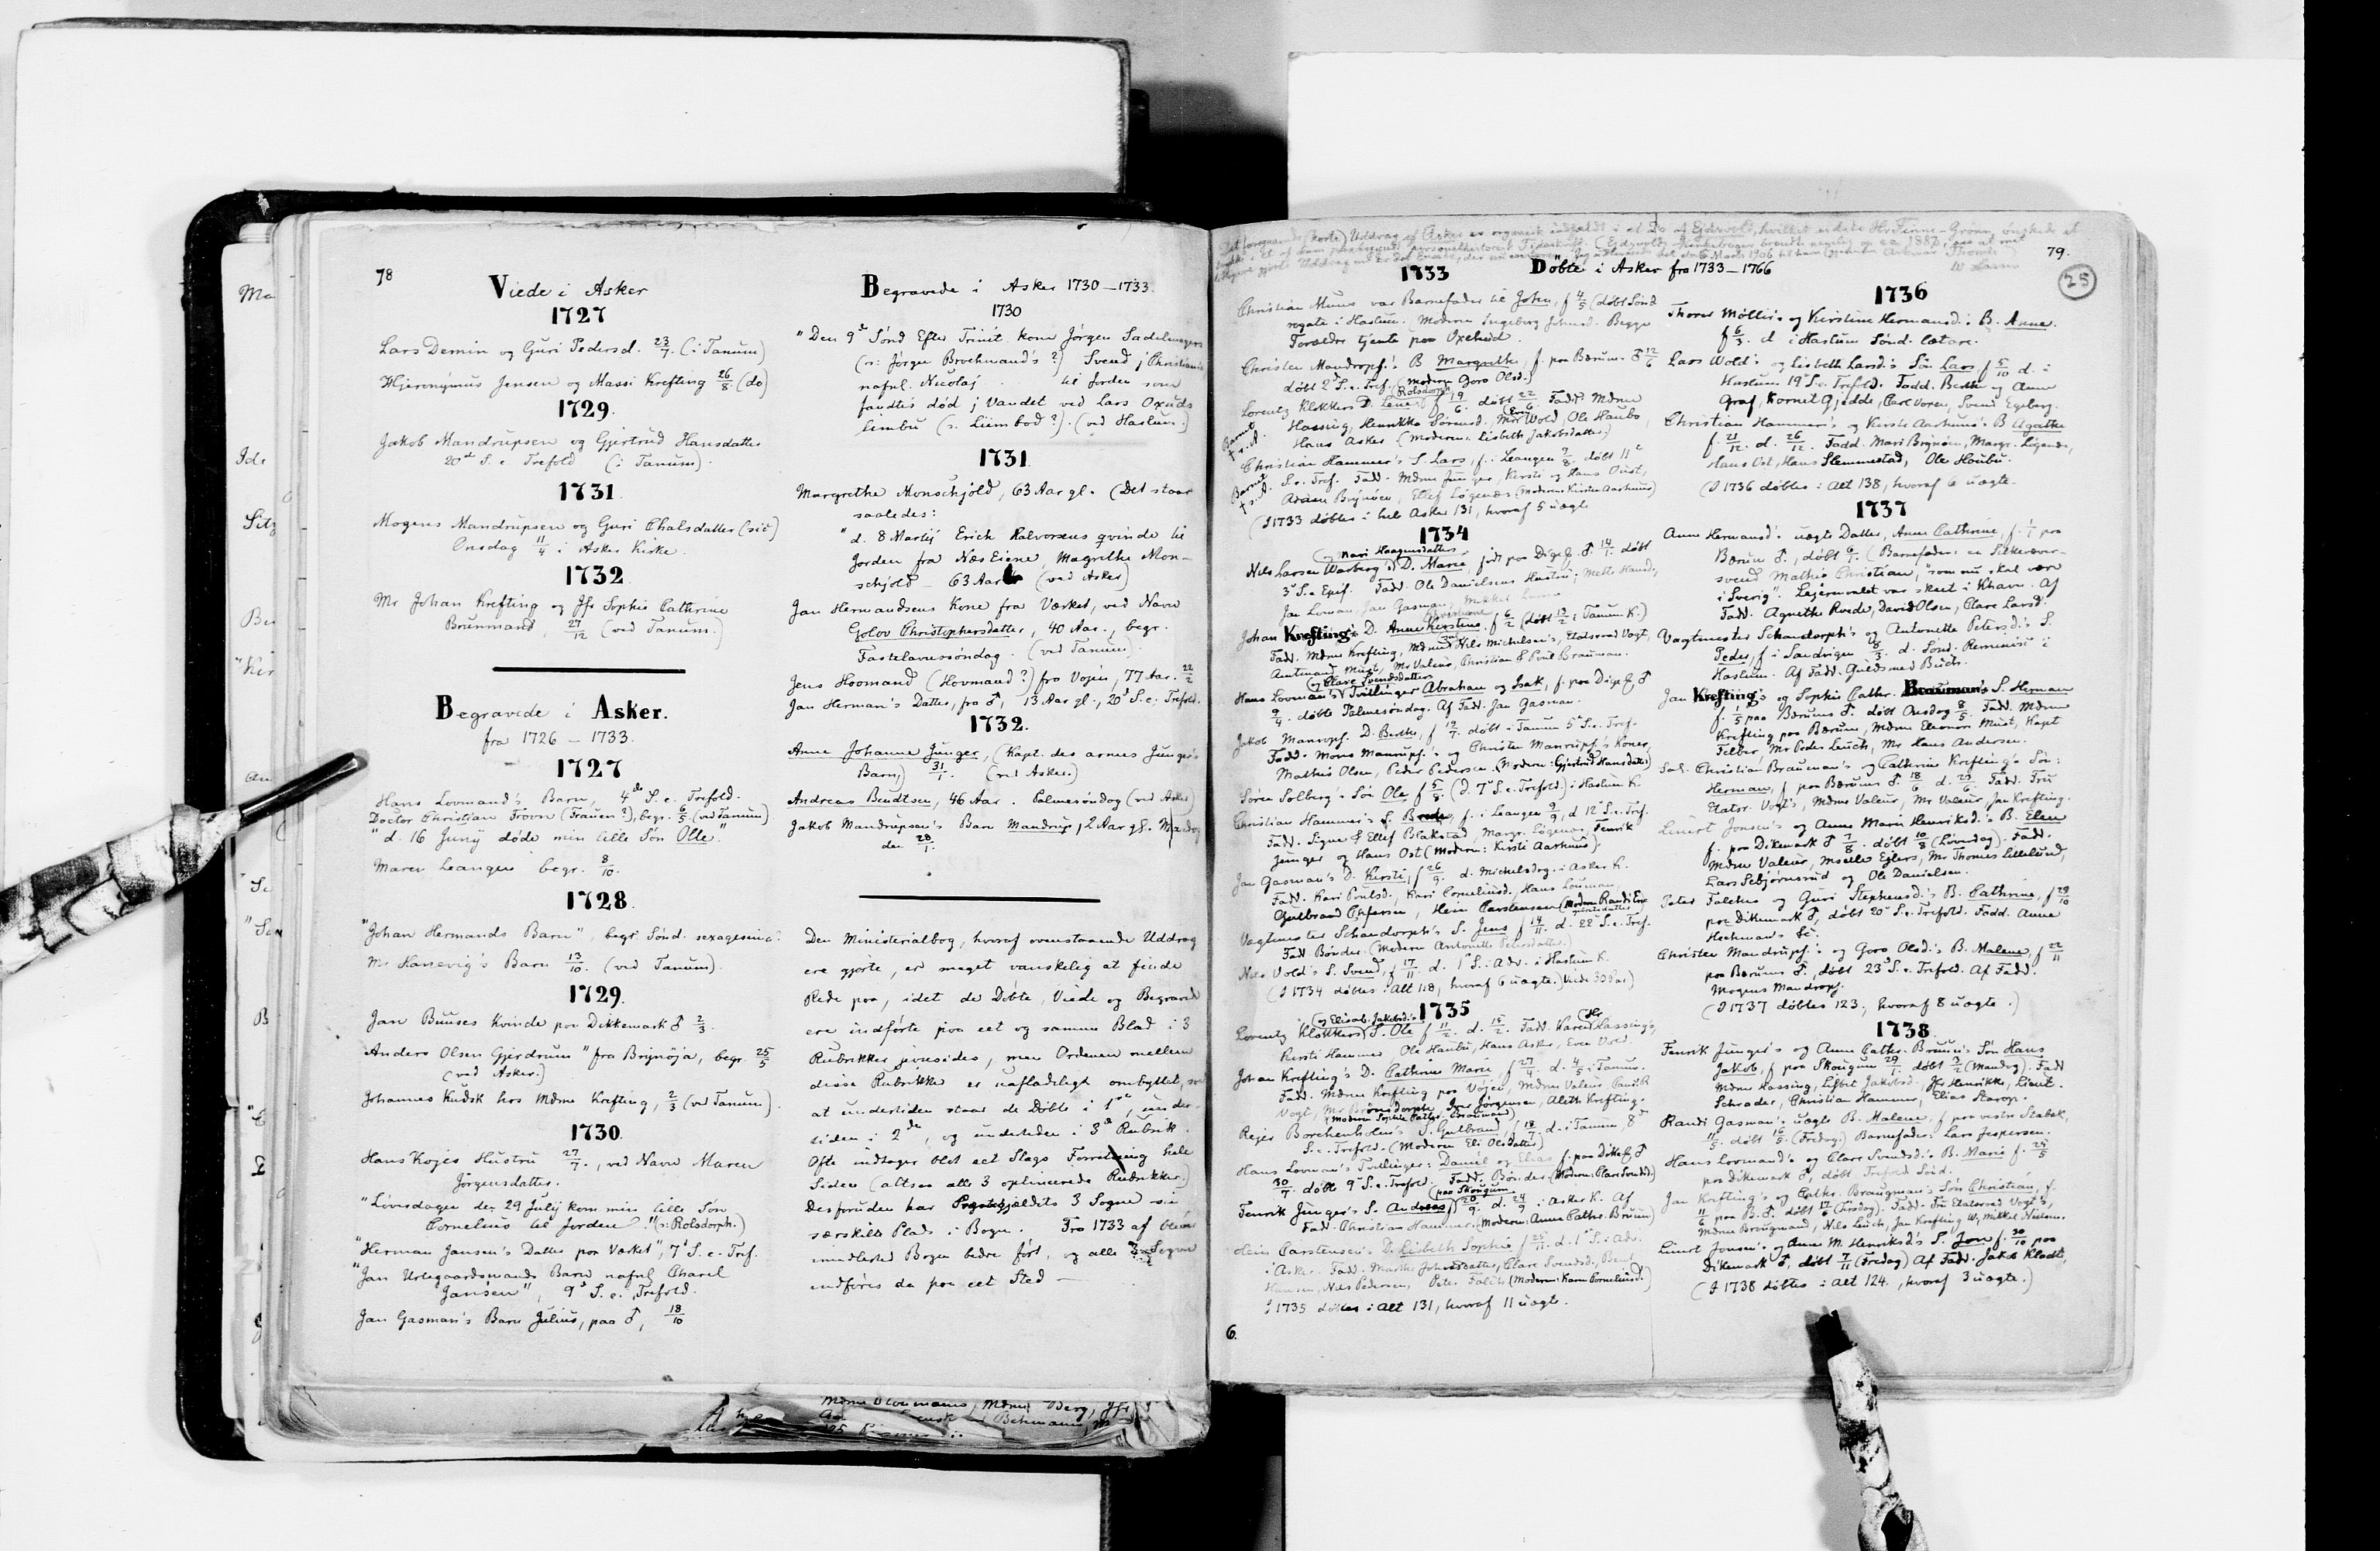 78
Viede i Asker
1727
Lars Demin og Guri Pedersd. 23/7. (i Tanum)
Hjeronymus Jensen og Massi Krefting 26/8. (do)
1729.
Jakob Mandrupsen og Gjertrud Hansdatter
20de S. e. Trefold (i Tanum).
1731
Mogens Mandrupsen og Guri Chalsdatter (sic)
Onsdag 11/4 i Asker Kirke.
1732
Mr Johan Krefting og Jfr Sophie Cathrine
Brunmand, 27/12 (ved Tanum.)
Begravede i Asker.
fra 1726 – 1733.
1727
Hans Lovmand's Barn, 4de S. e. Trefold.
Doctor Christian Trovn (Frauen?), begr. 6/5 (ved Tanum)
"d. 16 Junij døde min lille Søn Olle".
Maren Leangen begr. 8/10.
1728.
"Johan Hermands Barn", begr. Sønd. sexagesima.
Mr Hanevig's Barn 13/10. (ved Tanum).
1729.
Jan Buuses Kvinde paa Dikkemark ♂ 2/3.
Anders Olsen Gjerdrum "fra Brynøja, begr. 25/5
(ved Asker.)
Johannes Kudsk hos Mdme Krefting, 2/3 (ved Tanum).
1730.
Hans Kojes Hustru 27/7., ved Navn Maren
Jørgensdatter.
"Løversdagen den 29 Julij kom min lille Søn
Cornelius til Jorden". (ɔ: Rolsdorph.)
"Herman Jansen's Datter paa Værket", 7d S. e. Tref.
"Jan Urtegaardsmands Barn nafnl. Charel
Jansen", 9d S. e. Trefold.
Jan Gasman's Barn Julius, paa ♂, 18/10
Begravede i Asker 1730–1733.
1730
"Den 9de Sønd Efter Trinit. kom Jørgen Sadelmagers
(ɔ: Jørgen Brochmand's ?) Svend j Christiania
nafnl. Nicolaj til Jorden som
fandtis død j Vandet ved Lars Oxuds
lembu (ɔ: Liimbod?). (ved Haslum.)
1731
Margrethe Monschjold, 63 Aar gl. (Det staar
saaledes:
"d. 8 Martij Erich Halvorsens qvinde til
Jorden fra Næs Eierne, Magrethe Mon-
schjold – 63 Aar (ved Asker)
Jan Hermandsens Kone fra Værket, ved Navn
Golov Christophersdatter, 40 Aar, begr.
Fastelavnssøndag. (ved Tanum).
Jens Hoomand (Hovmand?) fra Vøjen, 77 Aar. 22/2
Jan Herman's Datter, fra ♂, 13 Aar gl., 20d S. e. Trefold.
1732.
Anne Johanne Junger, (Kapt. des armes Junger's
Barn,) 31/1. (ved Asker.)
Andreas Bendtsen, 46 Aar. Palmesøndag (ved Asker)
Jakob Mandrupsen's Barn Mandrup, 2 Aar gl. Mandag
den 28/1.
Den Ministerialbog, hvoraf ovenstaaende Uddrag
ere gjorte, er meget vanskelig at finde
Rede paa, idet de Døbte, Viede og Begravede
ere indførte paa eet og samme Blad i 3
Rubrikker jevnsides, men Ordenen mellem
disse Rubrikker er uafladeligt ombyttet,
at undertiden staar de Døbte i 1ste, under-
tiden i 2de, og undertiden i 3d Rubrik.
Ofte indtager blot eet Slags Forretning hele
Siden (altsaa alle 3 oplinierede Rubrikker.)
Desforuden har Præstegjældets 3 Sogne sin
særskilte Plads i Bogen. Fra 1733 af bliver
imidlertid Bogen bedre ført, og alle 3 Sogne
indføres da paa eet Sted —
79.
25
Døbte i Asker fra 1733–1766
1733
Christian Muus var Barnefader til John, f 4/5 (døbt Sønd
rogate i Haslum. (Moderen Ingeborg Johnsd. Begge
Forældre tjente paa Oxehud.
Christen Mandropf.'s B Margrethe, f. paa Bærum ♂ 12/6
døbt 2d S. e. Tref. (Moderen Goro Olsd.)
Lorentz Klokkers D. Lene f 19/6. døbt 22/6 Fadd. Mdme
Hassing, Henrikka Sørensd. Mr Wold, Ole Haubo,
Hans Asker (Moderen: Lisbeth Jakobsdatter)
Christian Hammer's S. Lars, f. i Leangen 7/8. døbt 11te
S. e. Tref. Fadd. Mdme Junger, Kirsti og Hans Oust,
Adam Brynøen, Ellef Løgenæs (Moderen Kirsten Aarhuus)
(I 1733 døbtes i hele Asker 131, hvoraf 5 uægte
1734
(og Mari Haagensdatters
Nils Larsen Warberg's D. Marie, født paa Digeg ♂ 14/1. døbt
3d S. e. Epif. Fadd. Ole Danielsens Hustru, Mette Hansd.,
Jan Lovman, Jan Gasman, Mikkel Larsen
Johan Krefting's D. Anne Kirstine, f 6/2 (døbt 12/2 i Tanum K.)
Fadd. Mdme Krefting, Mdme Nils Michelsen's, Etatsraad Vogt,
Amtmand Must, Mr Valeur, Christian & Poul Brauman.
og Clare Svendsdatters
Hans Lovman's Tvillinger Abraham og Isak, f. paa Digeg ♂
9/4. døbte Palmesøndag. Af Fadd. Jan Gasman.
Jakob Manropf. D. Berthe, f 12/7. døbt i Tanum 5d S. e. Tref.
Fadd. Mons Manrupf.'s og Christen Manrupf.'s Koner,
Mathis Olsen, Peder Pedersen. (Moderen: Gjertrud Hansdatter)
Søren Solberg's Søn Ole f 5/8. (d. 7d S. e. Trefold.) i Haslum K.
Christian Hammer's S. Brede, f. i Leangen 9/9, d 12d S. e. Tref.
Fadd. Signe & Ellef Blakstad, Margr. Løgenæs, Fenrik
Junger og Hans Ost (Moderen: Kirsti Aarhuus).
Jan Gasman's D. Kirsti, f 26/9. d. Michelsdag i Asker K.
Fadd. Kari Povelsd., Kari Corneliusd., Hans Louman,
Gulbrand Chrfersen, Hein Carstensen
Vagtmester Schandorph's S. Jens f 14/11. d. 22d S. e. Tref.
Fadd. Bønder. (Moderen Antonette Petersdatter.)
Nils Vold's S. Svend, f 17/11 d. 1d S. i Adv. i Haslum K.
(I 1734 døbtes i Alt 118, hvoraf 6 uægte.) Viede 30 Par)
1735
og Elisab. Jakobsd.'s
Lorentz Klokkers S. Ole f 11/2. d. 15/2. Fadd. Karen Hassing,
Kirsti Hammer, Ole Haubu, Hans Asker, Even Vold.
Johan Krefting's D. Cathrine Marie, f 27/4 d. 4/5 i Tanum.
Fadd. Mdme Krefting paa Vøjen, Mdme Valeur
Vogt, Mr Brønsdorph, Iver Jørgensen, Aleth Krefting.
(Moderen Sophie Cathr. Brouman)
Rejer Borchenholm's S. Gulbrand, f 18/7. d. i Tanum 8de
S. e. Trefold. (Moderen Eli Olsdatter)
Hans Lovman's Tvillinger: Daniel og Elias f. paa Dikeg ♂
30/7. døbte 9d S. e. Trefold. Fadd. Bønder (Moderen: Clare Svendsd.)
(paa Skougum
Fenrik Junger's S. Andreas, f 20/9. d. 24/9 i Asker K. Af
Fadd. Christian Hammer. (Moderen: Anne Cathr. Bruun)
Hein Carstensen's D. Lisbeth Sophie f 25/11. d. 1d S. i Adv.
i Asker. Fadd. Marthe Johnsdatter, Clare Svendsd.,
Hansen, Nils Pedersen, Peter Falch (Moderen: Karen Corneliusd.)
I 1735 døbtes i Alt 131, hvoraf 11 uægte.
6.
1736
Thorer Møller's og Kirstine Hermansd.'s B. Anne.
f 6/3. d i Haslum Sønd. Lætare.
Lars Wold's og Lisbeth Larsd.'s Søn Lars f 5/10 d. i
Haslum 19d S. e. Trefold. Fadd. Berthe og Anne
Graf, Kornet Gjedde, Carl Voren, Svend Egeberg.
Christian Hammer's og Kirsti Aarhuus's B Agathe
f. 21/12. d. 26/12. Fadd. Mari Brynøen, Margr. Løgenæs,
Hans Ost, Hans Slemmestad, Ole Houbu.
(I 1736 døbtes i Alt 138, hvoraf 6 uægte.
1737
Anne Hermansd.'s uægte Datter, Anne Cathrine, f. 1/1 paa
Bærum ♂, døbt 6/1. (Barnefader: en Silkevæver-
svend Mathis Christian, "som nu skal være
i Sverig". Lejermaalet var skeet i Khavn. Af
Fadd. Agnethe Rvede, David Olsen, Clare Larsd.
Vagtmester Schandorph's og Antonette Petersd.'s S.
Peder, f i Sandvigen 8/3. d. Sønd. Reminisc i
Haslum. Af Fadd. Guldsmed Buch.
Jan Krefting's og Sophie Cathr. Brauman's S. Herman
f. 1/5 paa Bærums ♂. døbt Onsdag 8/5. Fadd. Mdme
Krefting paa Bærum, Mdme Eleonore Must, Kapt
Felber, Mr Peder Leuch, Mr Hans Andersen.
Sal. Christian Brauman's og Cathrine Krefting's Søn:
Herman, f paa Bærums ♂ 18/6 d. 27/6. Fadd. Fru
Etatsr. Vogt's, Mdme Valeur, Mr Valeur, Jan Krefting.
Linert Jonsen's og Anne Marie Henriksd.'s B. Elen
f. paa Dikemark ♂ 7/8. døbt 10/8 (Løverdag). Fadd.
Mdme Valeur, Mselle Ejlers, Mr Thomes Lillelund,
Lars Sebjørnsrud og Ole Danielsen.
Peter Falcke's og Guri Stephensd.'s B. Cathrine, f 29/10
paa Dikemark ♂, døbt 20d S. e. Trefold. Fadd. Anne
Christen Mandrupf.'s og Goro Olsd.'s B. Malene, f 22/11
paa Bærums ♂, døbt 23d S. e. Trefold. Af Fadd.
Mogens Mandropf.
(I 1737 døbtes 123, hvoraf 8 uægte.)
1738
Fenrik Junger's og Anne Cathr. Bruun's Søn Hans
Jakob, f paa Skougum 29/1. døbt 3/2 (Mandag). Fadd
Mdme Hassing, Lisbet Jakobsd., Jfr Henrikke, Lieut.
Schrader, Christian Hammer, Elias Starop.
Randi Gasman's uægte B. Malene, f paa vestre Stabæk,
11/5. døbt 16/5 (Fredag.) Barnefader: Lars Jespersen.
Hans Lovmand's og Clare Svendsd.'s B. Marie f. 25/5
paa Dikemark ♂, døbt Trefold. Sønd.
Jan Krefting's og Cathr. Braugman's Søn Christian, f.
11/6 paa B. ♂ døbt 17/6 (Tirsdag). Fadd. Fru Etatsraad Vogt's,
Mdme Braugmand, Nils Leuch, Jan Krefting og Mikkel Nielsen.
Linert Jonsen's og Anne M. Henriksd's S. Jon f. 30/10 paa
Dikemark ♂, døbt 7/11 (Fredag) Af Fadd. Jakob Kladt,
(I 1738 døbtes i Alt 124., hvoraf 3 uægte.)